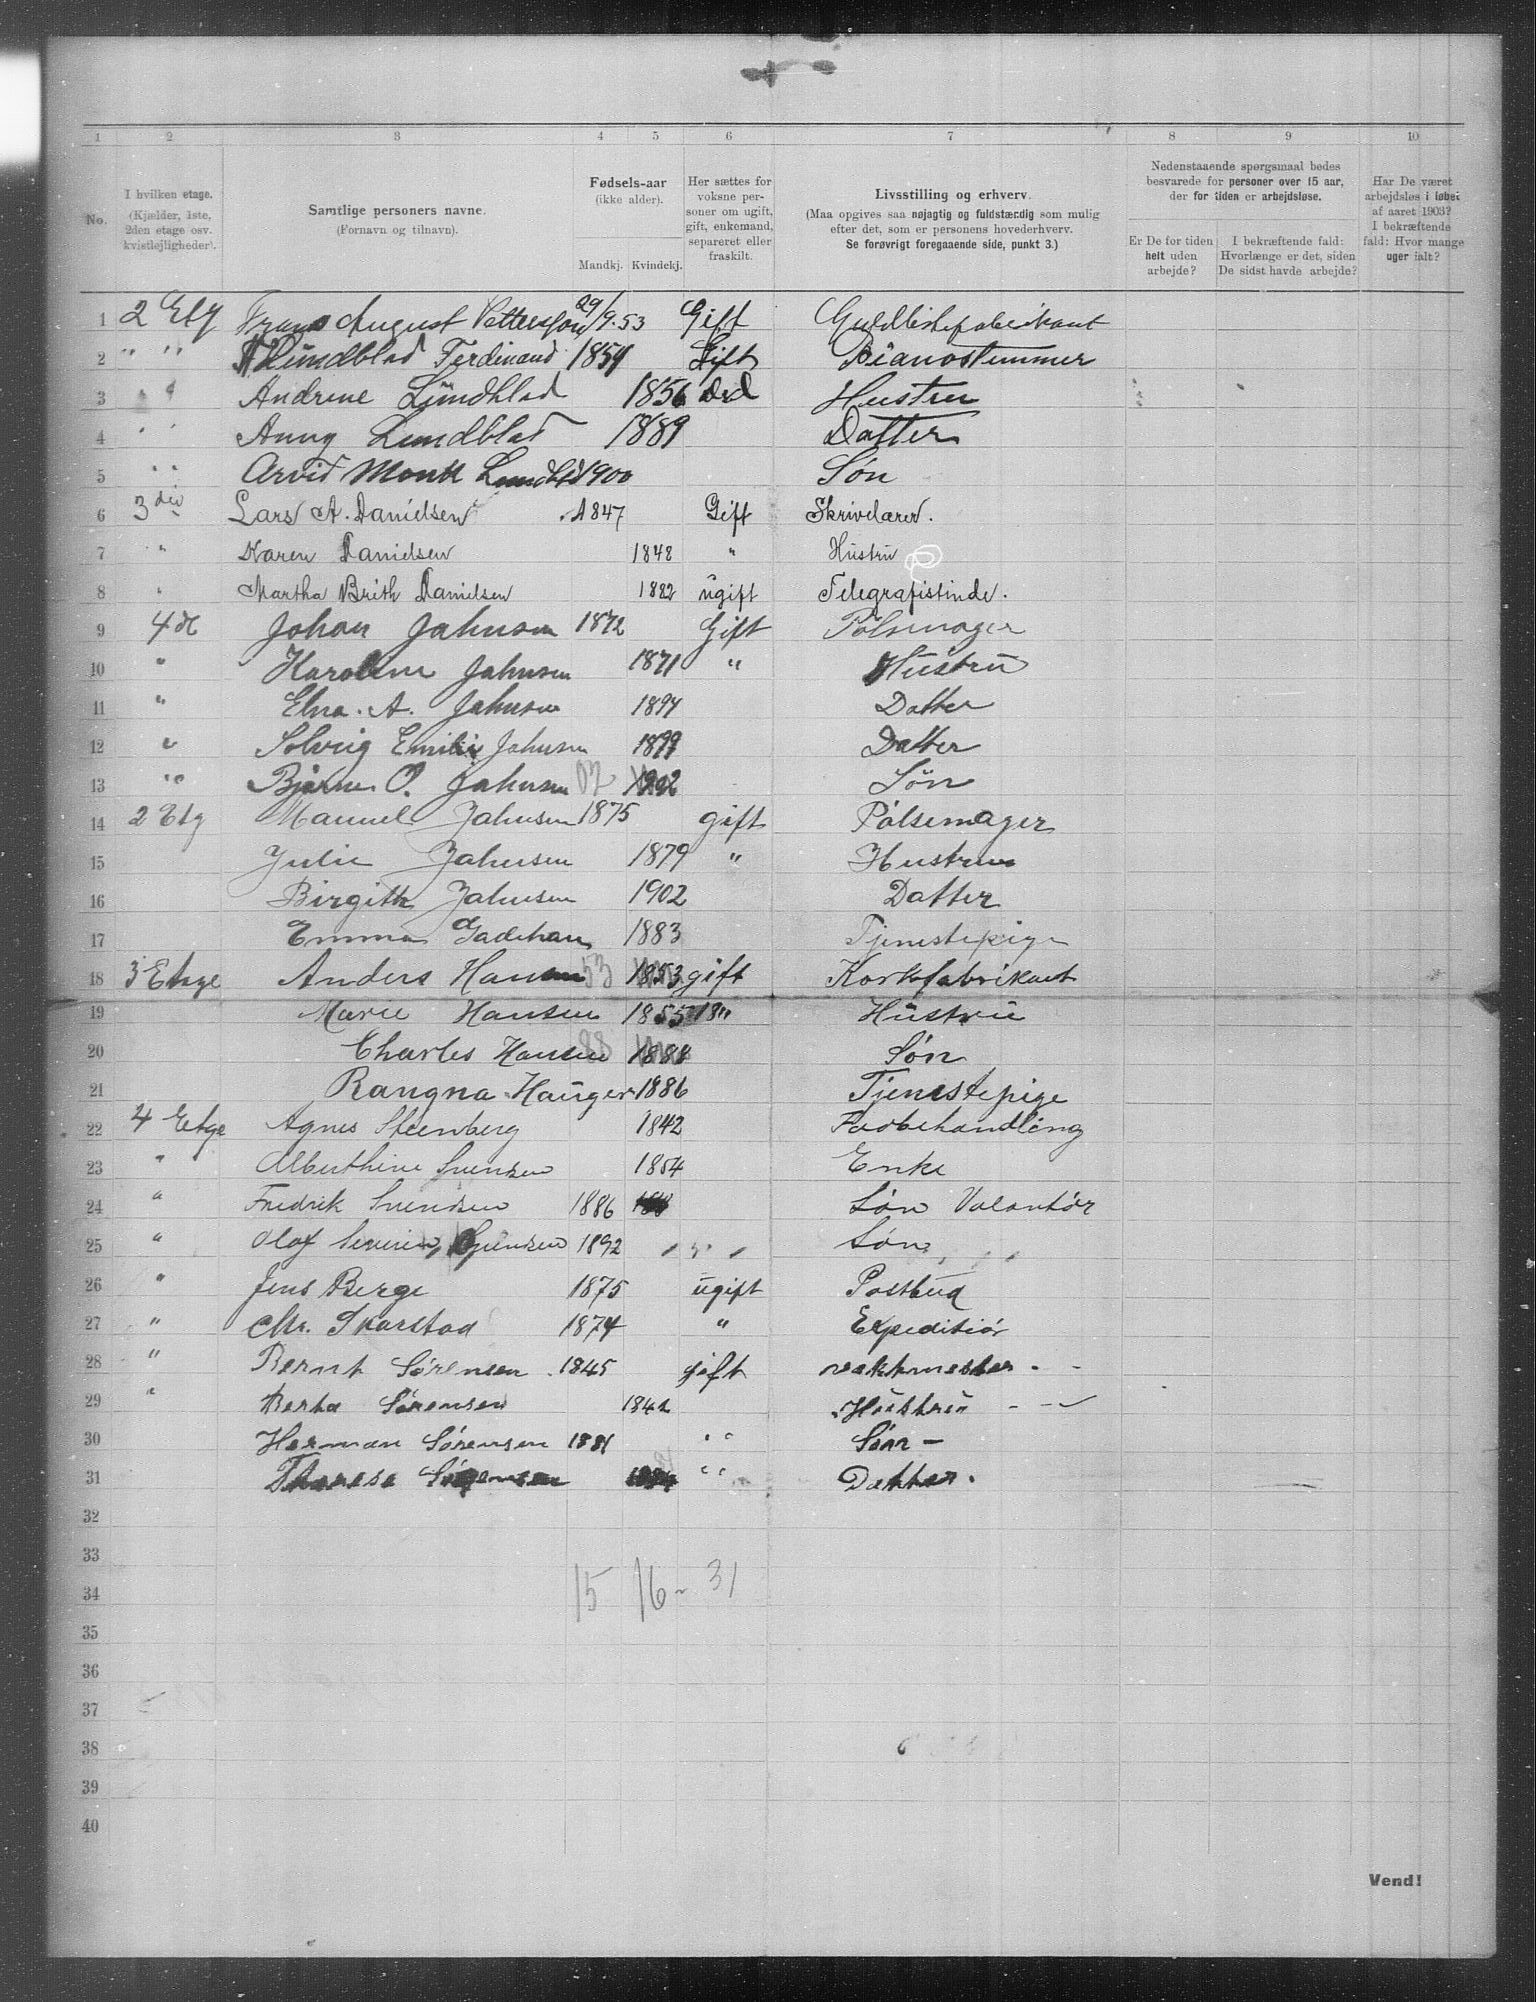 1 2 3 4 5 6 7 8 9 10
No.
I hvilken etage.
(Kjælder, 1ste,
2den etage osv.
kvistlejligheder).
Samtlige personers navne.
(Fornavn og tilnavn).
Fødsels-aar
(ikke alder).
Mandkj. Kvindekj.
Her sættes for
voksne per-
soner om ugift,
gift, enkemand,
separeret eller
fraskilt.
Livsstilling og erhverv.
(Maa opgives saa nøjagtig og fuldstændig som mulig
efter det, som er personens hovederhverv.
Se forøvrigt foregaaende side, punkt 3.)
Nedenstaaende spørgsmaal bedes
besvarede for personer over 15 aar,
der for tiden er arbejdsløse.
Er De for tiden
helt uden
arbejde?
I bekræftende fald:
Hvorlænge er det, siden
De sidst havde arbejde?
Har De været
arbejdsløs i løbet
af aaret 1903?
I bekræftende
fald: Hvor mange
uger ialt?
1 2 Etg Frans August Pettersson 29/9.53 Gift
2 " " Lundblad Ferdinand 1854 Gift Pianostemmer
3 " " Andrene Lundblad 1856 Hustru
4 " " Anny Lundblad 1889 Datter
5 " " Arvid Lundblad 1900 Søn
6 3die Lars A. Danielsen 1847 Gift Skrivelærer.
7 " Karen Danielsen 1848 " Hustru
8 " Martha Brith Danielsen 1882 ugift Telegrafistinde.
9 4de Johan Jahnsen 1872 Gift Pølsemager
10 " Karoline Jahnsen 1871 " Hustru
11 " Elna. A. Jahnsen 1894 Datter
12 " Solveig Emilie Jahnsen 1899 Datter
13 " Bjarne O. Jahnsen 02 1902 Søn
14 2 Etg Manuel Jahnsen 1875 gift Pølsemager
15 Julie Jahnsen 1879 " Hustru
16 Birgith Jahnsen 1902 Datter
17 Emma 1883 Tjenestepige
18 3 Etage Anders Hansen 53 1853 gift Korkfabrikant
19 Marie Hansen 1855 " Hustru
20 Charles Hansen 88 1888 Søn
21 Rangna Hauger 1886 Tjenestepige
22 4 Etge Agnes Steenberg 1842 Fodbehandling
23 " Alberthine Svensen 1854 Enke
24 " Fredrik Svendsen 1886 Søn Volontør
25 " Olaf Severin Svendsen 1892 Søn
26 " Jens Berge 1875 ugift Postbud
27 " Chr. Skarstad 1874 " Expeditiør
28 " Bernt Sørensen 1845 gift vaktmester
29 " Berta Sørensen 1842 Hustru
30 Herman Sørensen 1881 " Søn
31 Therese Sørensen 1884 " Datter.
32
33
34 15 16 - 31
35
36
37
38
39
40
Vend!